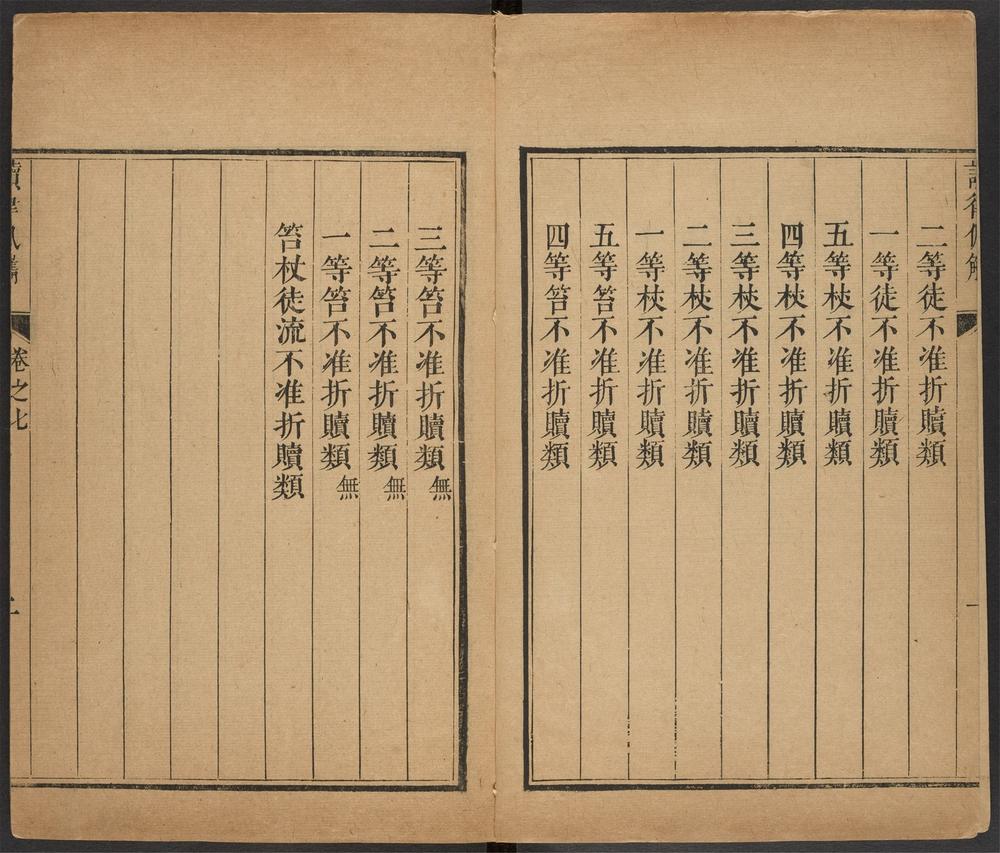 二等徒不准折贖類
一等徒不准折贖類
五等杖不准折贖類
四等杖不准折贖類
三等杖不准折贖類
二等杖不准折贖類
一等杖不准折贖類
五等笞不准折贖類
四等笞不准折贖類
三等笞不准折贖類無
二等笞不准折贖類無
一等笞不准折贖類無
笞杖徒流不准折贖類
卷之七